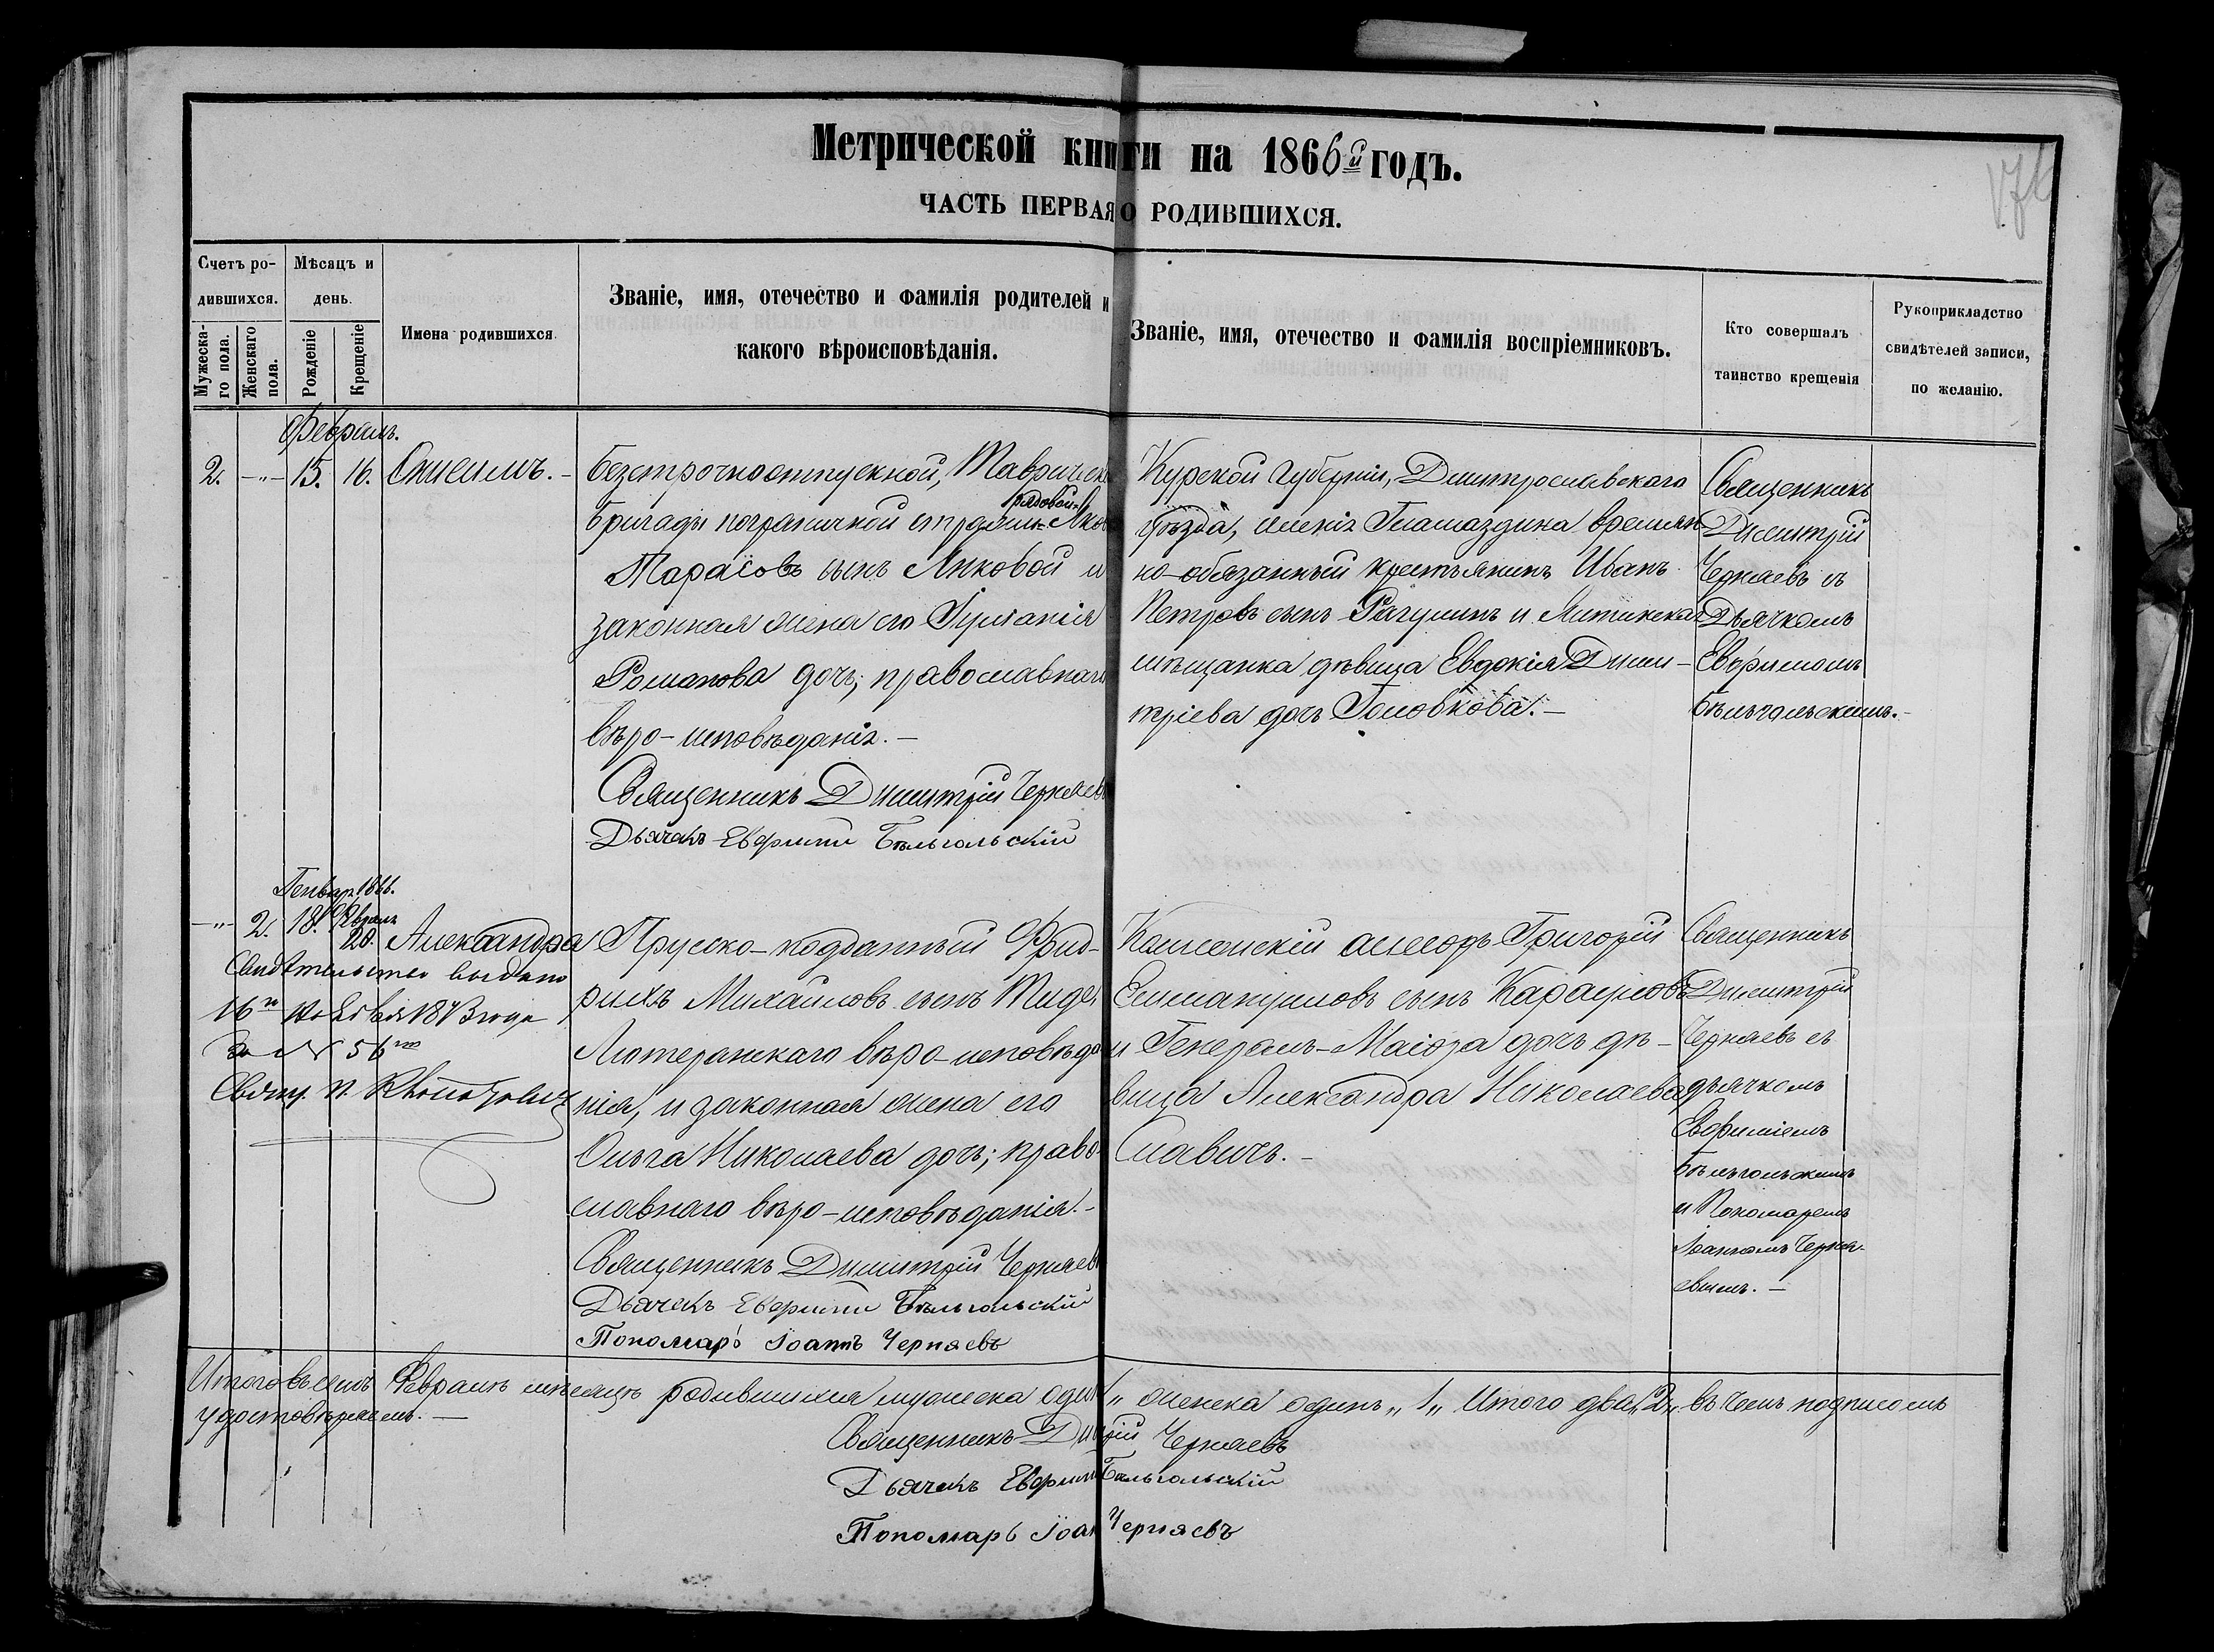 Метрической книги на 1866й годъ.
ЧАСТЬ ПЕРВАЯ О РОДИВШИХСЯ.
Счетъ ро-
дившихся.
Мужеска-
го пола.
Женскаго
пола.
Мѣсяцъ и
день.
Рожденіе
Крещеніе
Имена родившихся
Званіе, имя, отечество и фамилія родителей и
какого вѣроисповѣданія.
Званіе, имя, отечество и фамилія воспріемниковъ.
Кто совершалъ
таинство крещенія
Рукоприкладство
свидѣтелей записи,
по желанію.
Февраль.
2. -"- 15. 16. Онисимъ.-
Безсрочноотпускной, Тавричес
рядовой
бригады пограничной стражи Яков
Тарасовъ сынъ Ликовой и
законная жена его
Романова дочь; православнаго
вѣро-исповѣданія.-
Священникъ Димитрій Черняевъ
Дьячекъ Евфимій Бѣльгольскій
Курской губерніи, Дмитрославского
уѣзда, имѣнія времян
но-обязанный крестьянинъ Иванъ
Петровъ сынъ Рагулинъ и Ялтинская
мѣщанка дѣвица Евдокія Дими-
тріева дочь Головкова.-
Священникъ
Димитрій
Черняевъ съ
Дьячкомъ
Евфимомъ
Бѣльгольскимъ.-
Генварь 1866.
-"- 2. 18. Февраль
20. Александра
Свидѣтельство выдано
16го Ноября 1873 года
за № 56мъ
Прусско-подданный Фрид-
рихъ Михайловъ сынъ Тиде,
Лютеранскаго вѣро-исповѣда
нія, и законная жена его
Ольга Николаева дочь; право-
славнаго вѣро-исповѣданія.-
Священникъ Димитрій Черняевъ
Дьячекъ Евфимій Бѣльгольскій
Пономарь Іоаннъ Черняевъ
Коллежскій ассесоръ Григорій
сынъ Карауловъ
и Генералъ-Маіора дочь дѣ-
вица Александра Николаева
Славичъ.-
Священникъ
Димитрій
Черняевъ съ
дьячкомъ
Евфиміемъ
Бѣльгольскимъ
и Пономаремъ
Іоанномъ Черня-
евымъ.-
Итого въ семъ Февралѣ мѣсяцѣ родившихся мужеска одинъ " женска одинъ "1" Итого два "2" въ чемъ подписомъ
удостовѣряемъ.-
Священникъ Димитрій Черняевъ
Дьячекъ Евфимій Бѣльгольскій
Пономарь Іоаннъ Черняевъ